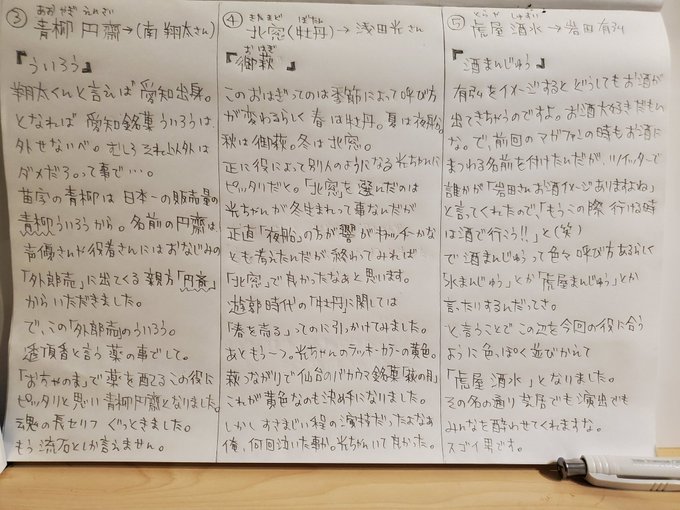 ③ あおやぎ えんさい
青柳 円齋→(南 翔太さん)
『ういろう』
翔太くんと言えば愛知出身。
となれば 愛知銘菓 ういろうは
外せないべ。むしろ それ以外は
ダメだろ。って事で…。
苗字の青柳は 日本一の販売量の
青柳ういろうから。名前の円齋は
声優さんや役者さんにはおなじみの
「外郎売」に出てくる 親方「円斎」
からいただきました。
で、この「外郎売」のういろう。
透頂香と言う薬の事でして。
「おちゃのま」で薬を配るこの役に
ピッタリと思い 青柳円齋となりました。
魂の長セリフ ぐっときました。
もう 流石としか言えません。
④ きたまど ぼたん
北窓(牡丹)→浅田光さん
おはぎ
『御萩』
このおはぎってのは季節によって呼び方
が変わるらしく 春は牡丹。夏は夜船。
秋は御萩。冬は北窓。
正に役によって別人のようになる光ちゃんに
ピッタリだと。「北窓」を選んだのは
光ちゃんが冬生まれって事なんだが
正直「夜船」の方が響がキャッチーかな
とも考えたんだが 終わってみれば
「北窓」で良かったなぁと思います。
遊郭時代の「牡丹」に関しては
「春を売る」ってのに引っかけてみました。
あともう一つ。光ちゃんのラッキーカラーの黄色。
萩つながりで仙台のバカウマ銘菓「萩の月」
これが黄色なのも決め手になりました。
しかし、すさまじい程の演技だったなぁ
俺、何回泣いた事か。光ちゃんいて良かった。
⑤ とらや しゅすい
虎屋 酒水→岩田有弘
『酒まんじゅう』
有弘をイメージするとどうしてもお酒が
出てきちゃうのですよ。お酒大好きだもん
な。で、前回のマガファンの時もお酒に
まつわる名前を付けたんだが、ツイッターで
誰かが「岩田さんお酒イメージありますよね」
と言ってくれたので、「もうこの際 行ける時
は酒で行こう!!」と(笑)
で 酒まんじゅうって色々呼び方あるらしく
「水まんじゅう」とか「虎屋まんじゅう」とか
言ったりするんだってさ。
と言うことで この辺を今回の役に合う
ように色っぽく並びかえて
「虎屋 酒水」となりました。
その名の通り 芝居でも演出でも
みんなを酔わせてくれますな。
スゴイ男です。